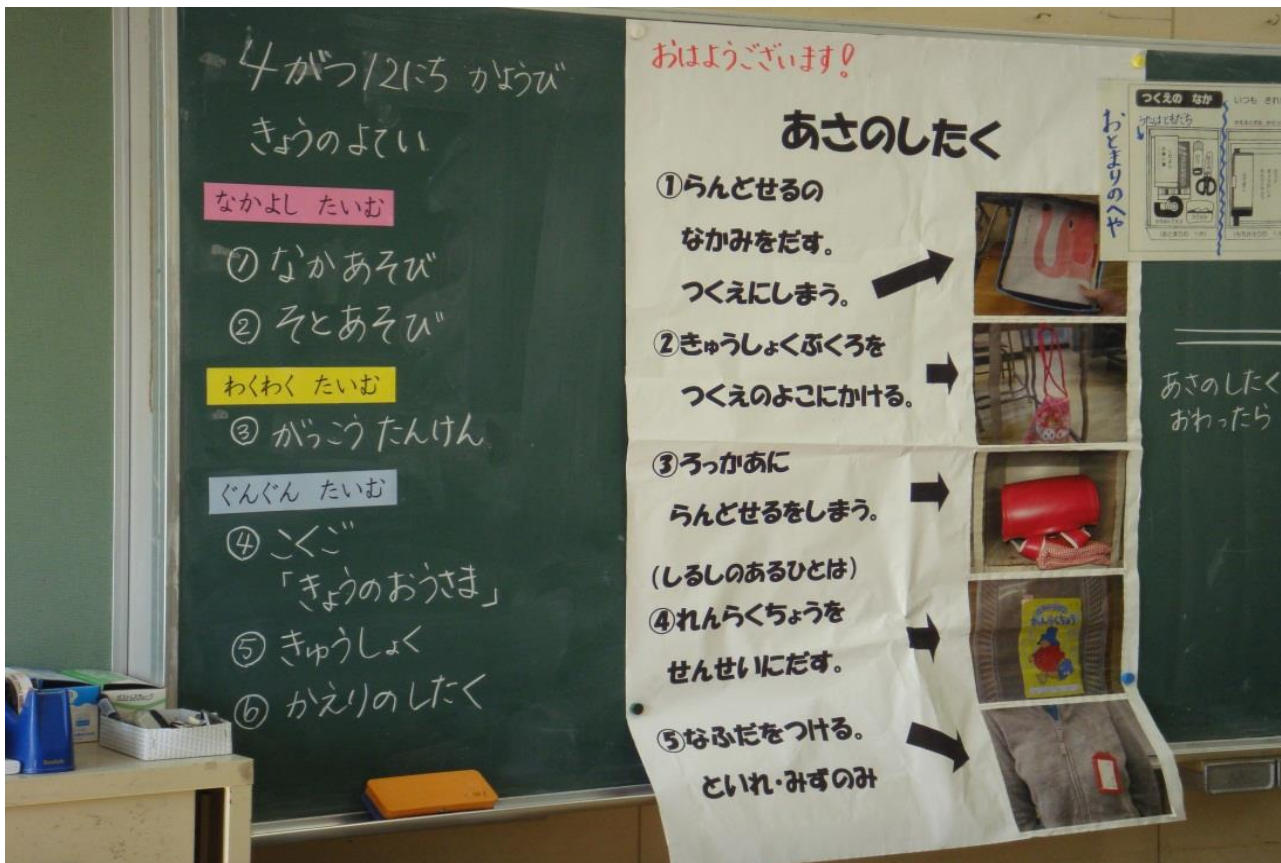 4がつ12にち かようび
きょうのよてい
なかよし たいむ
①なかあそび
②そとあそび
わくわく たいむ
③がっこうたんけん
ぐんぐん たいむ
④こくご
「きょうのおうさま」
⑤きゅうしょく
⑥かえりのしたく
おはようございます!
あさのしたく
①らんどせるの
なかみをだす。
つくえにしまう。
②きゅうしょくぶくろを
つくえのよこにかける。
③ろっかあに
らんどせるをしまう。
(しるしのあるひとは)
④れんらくちょうを
せんせいにだす。
⑤なふだをつける。
といれ・みずのみ
つくえの なか
いつも
おとまりのへや
あさのしたく
おわったら